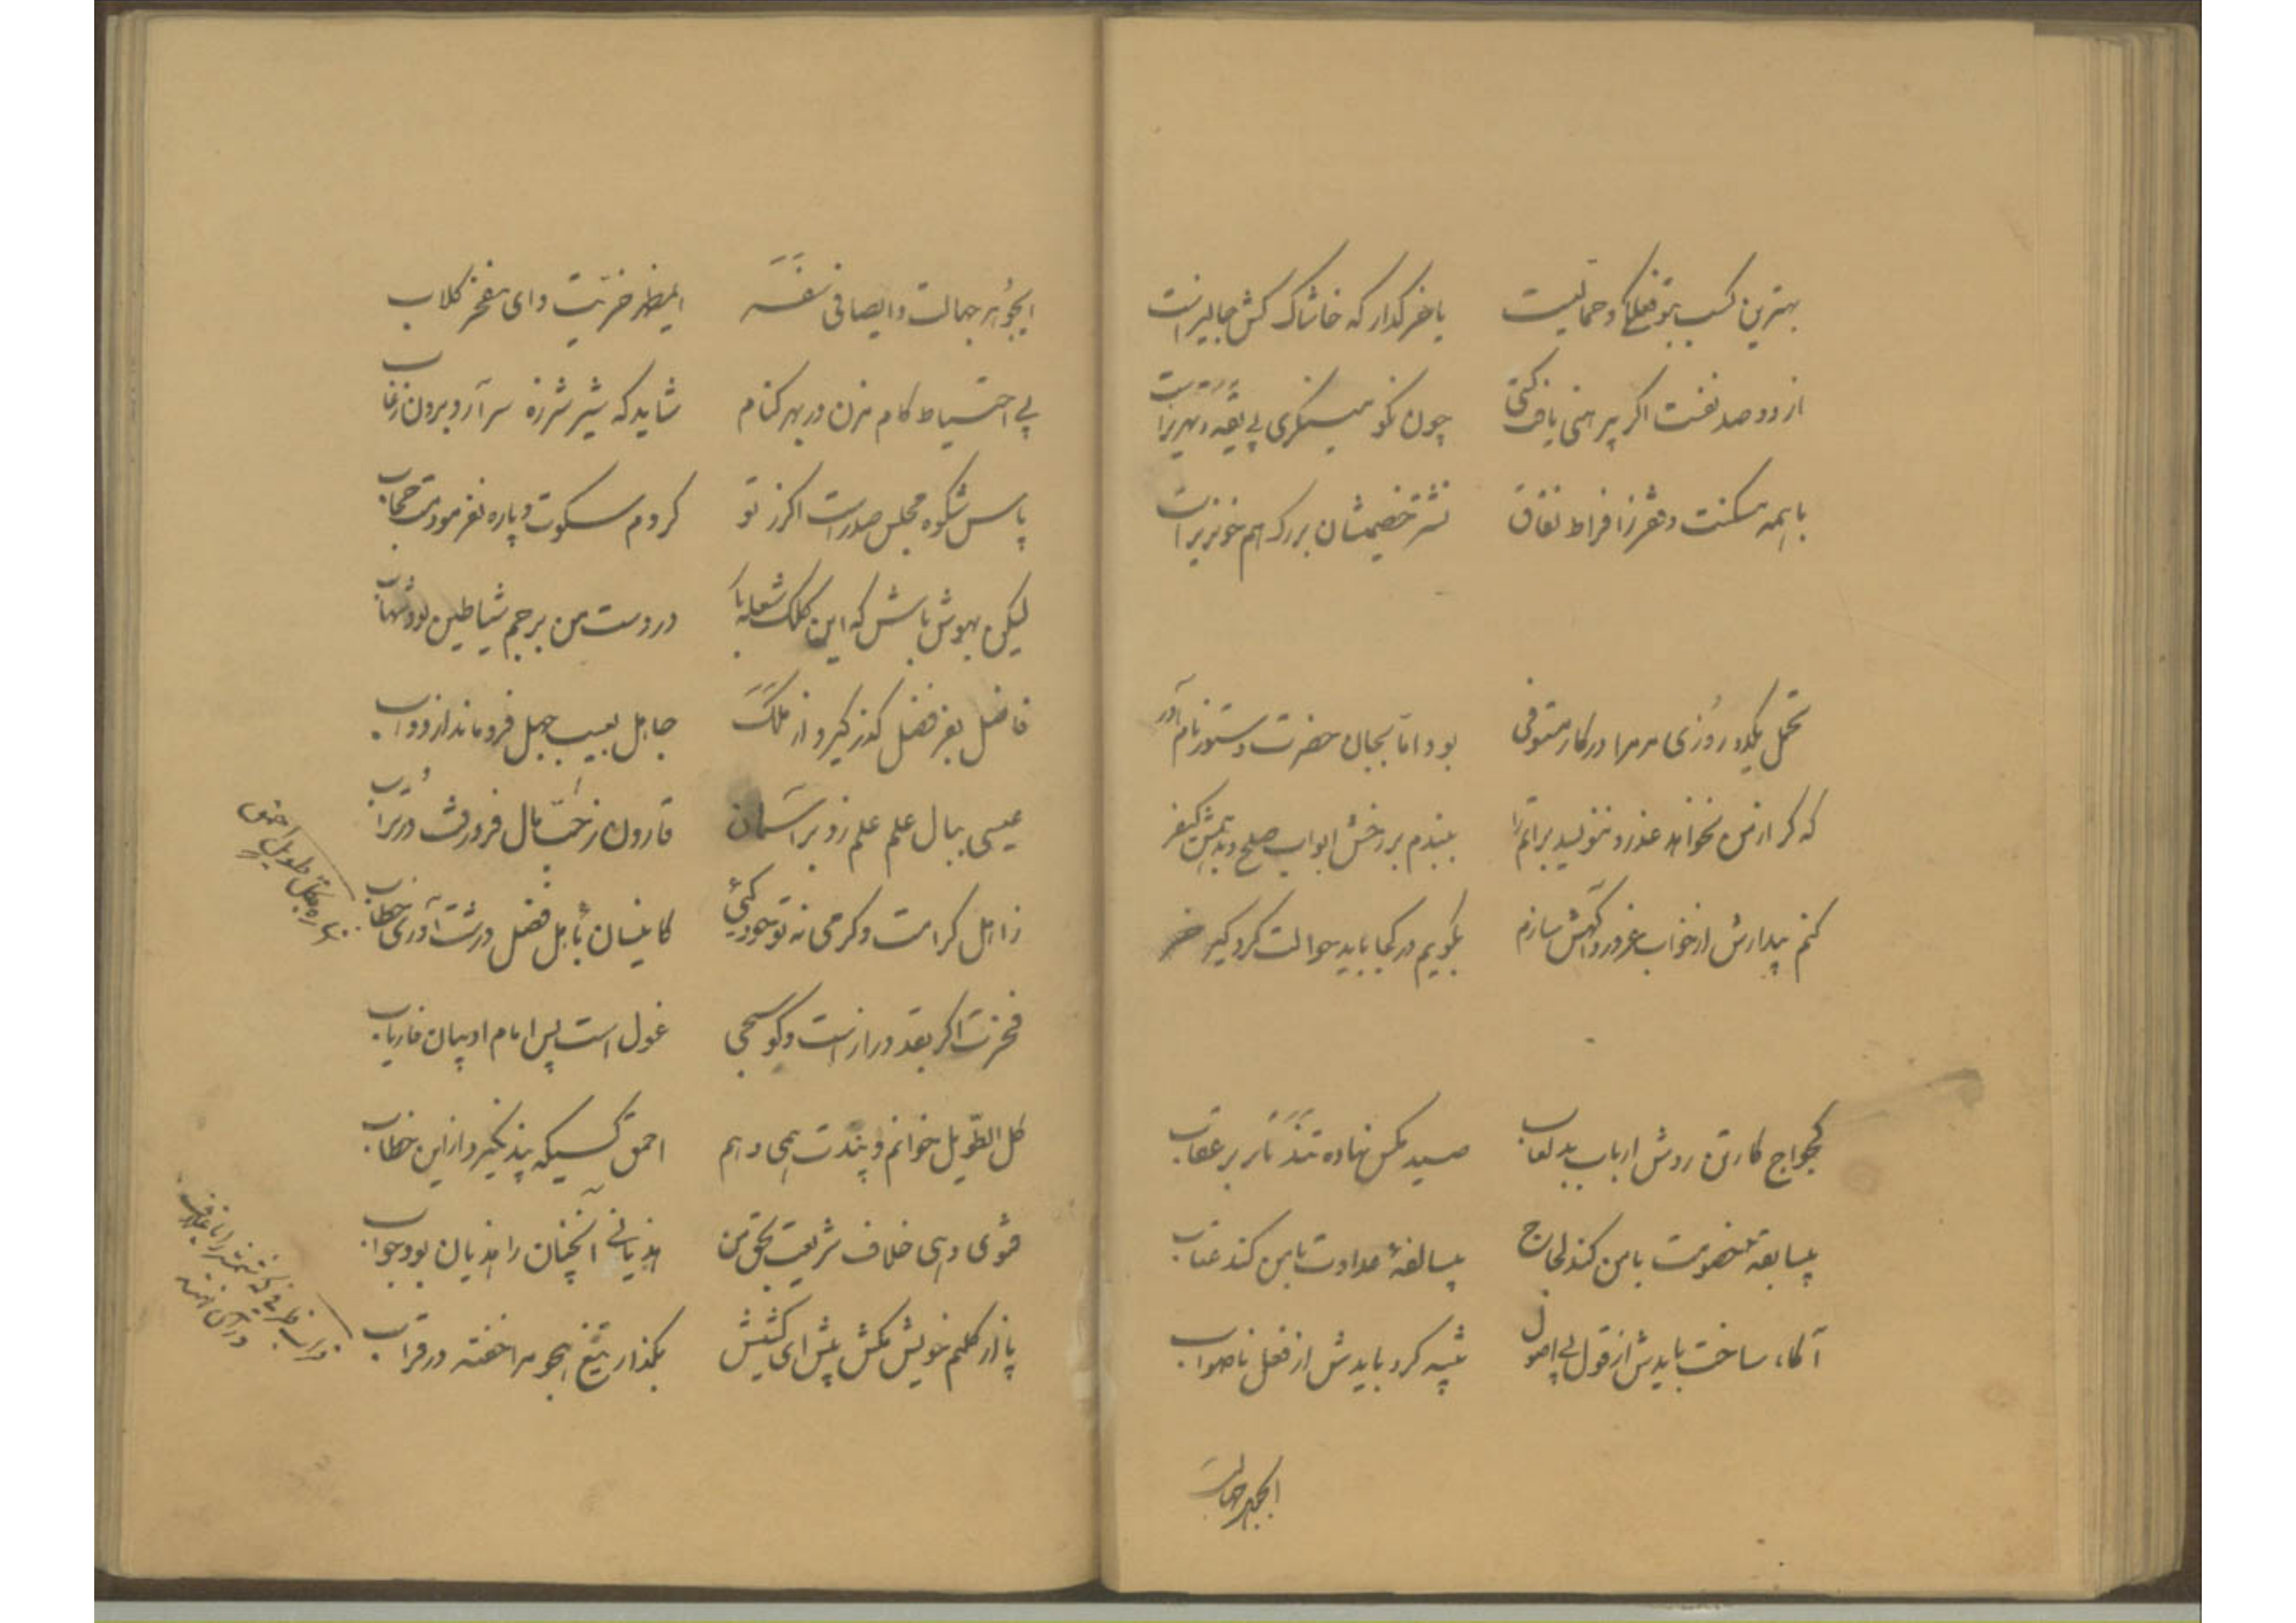 بهترین کسب بتوقعلی و حمالیت    یا خر کدار که خاشاک کش جالیز است
از دو صد نفست اکر پیرهنی یافت کسی    چون نکو می‌نگری بی یقه و تیریز است
با همه مسکنت و فقر ز افراط نفاق    نشتر خصمیشان بر رک هم خونریز است
تحمل یکدو روزی مر مرا در کار مستوفی    بود اما بجان حضرت دستور نام آور
که کر از من نخواهد عذر و ننویسد براتم را    ببندم بر رخش ابواب صلح و بدهمش کیفر
کنم بیدارش از خواب غرور و آکهش سازم    بکویم در کجا باید حوالت کرد کیر خر
کجواج کارتن روش ارباب بد لعاب    صید مکس نهاده تند تار بر عقاب
بیسابقه خصومت با من کند لجاج    بیسالفهٔ عداوت با من کند عتاب
آکاه ساخت بایدش از قول بی اصول    تنبیه کرد بایدش از فعل ناصواب
ایجوهر جهالت
ایجوهر جهالت و ایصافی سفه    ایمظهر خریت و ای مفخر کلاب
بی احتیاط کام مزن در بهر کنام    شاید که شیر شرزه سر آرد برون ز غاب
پاس شکوه مجلس صدر است اکر ز تو    کردم سکوت و پاره نفرمودمت حجاب
لیکن بهوش باش که این کلک شعله بار    در دست من برجم شیاطین بود شهاب
فاضل بفر فضل کذر کیرد از ملک    جاهل بعیب جهل فرو ماند از دواب
عیسی ببال علم علم زد بر آسمان    قارون ز خبث مال فرو رفت در تراب
ز اهل کرامت و کرمی نه تو خود کئی    کاینسان باهل فضل درشت آوری خطاب
فخرت اکر بقد دراز است و کوسجی    غول است پس امام ادیبان فاریاب
کل الطویل خوانم و پندت همی دهم    احمق کسیکه پند نکیرد از این خطاب
فتوی دهی خلاف شریعت بحق من    هذیانی آنچنان را هذیان بود جواب
پا از کلیم خویش مکش پیش ای کشیش    بکذار تیغ هجو مرا خفته در قراب
طویل احمق